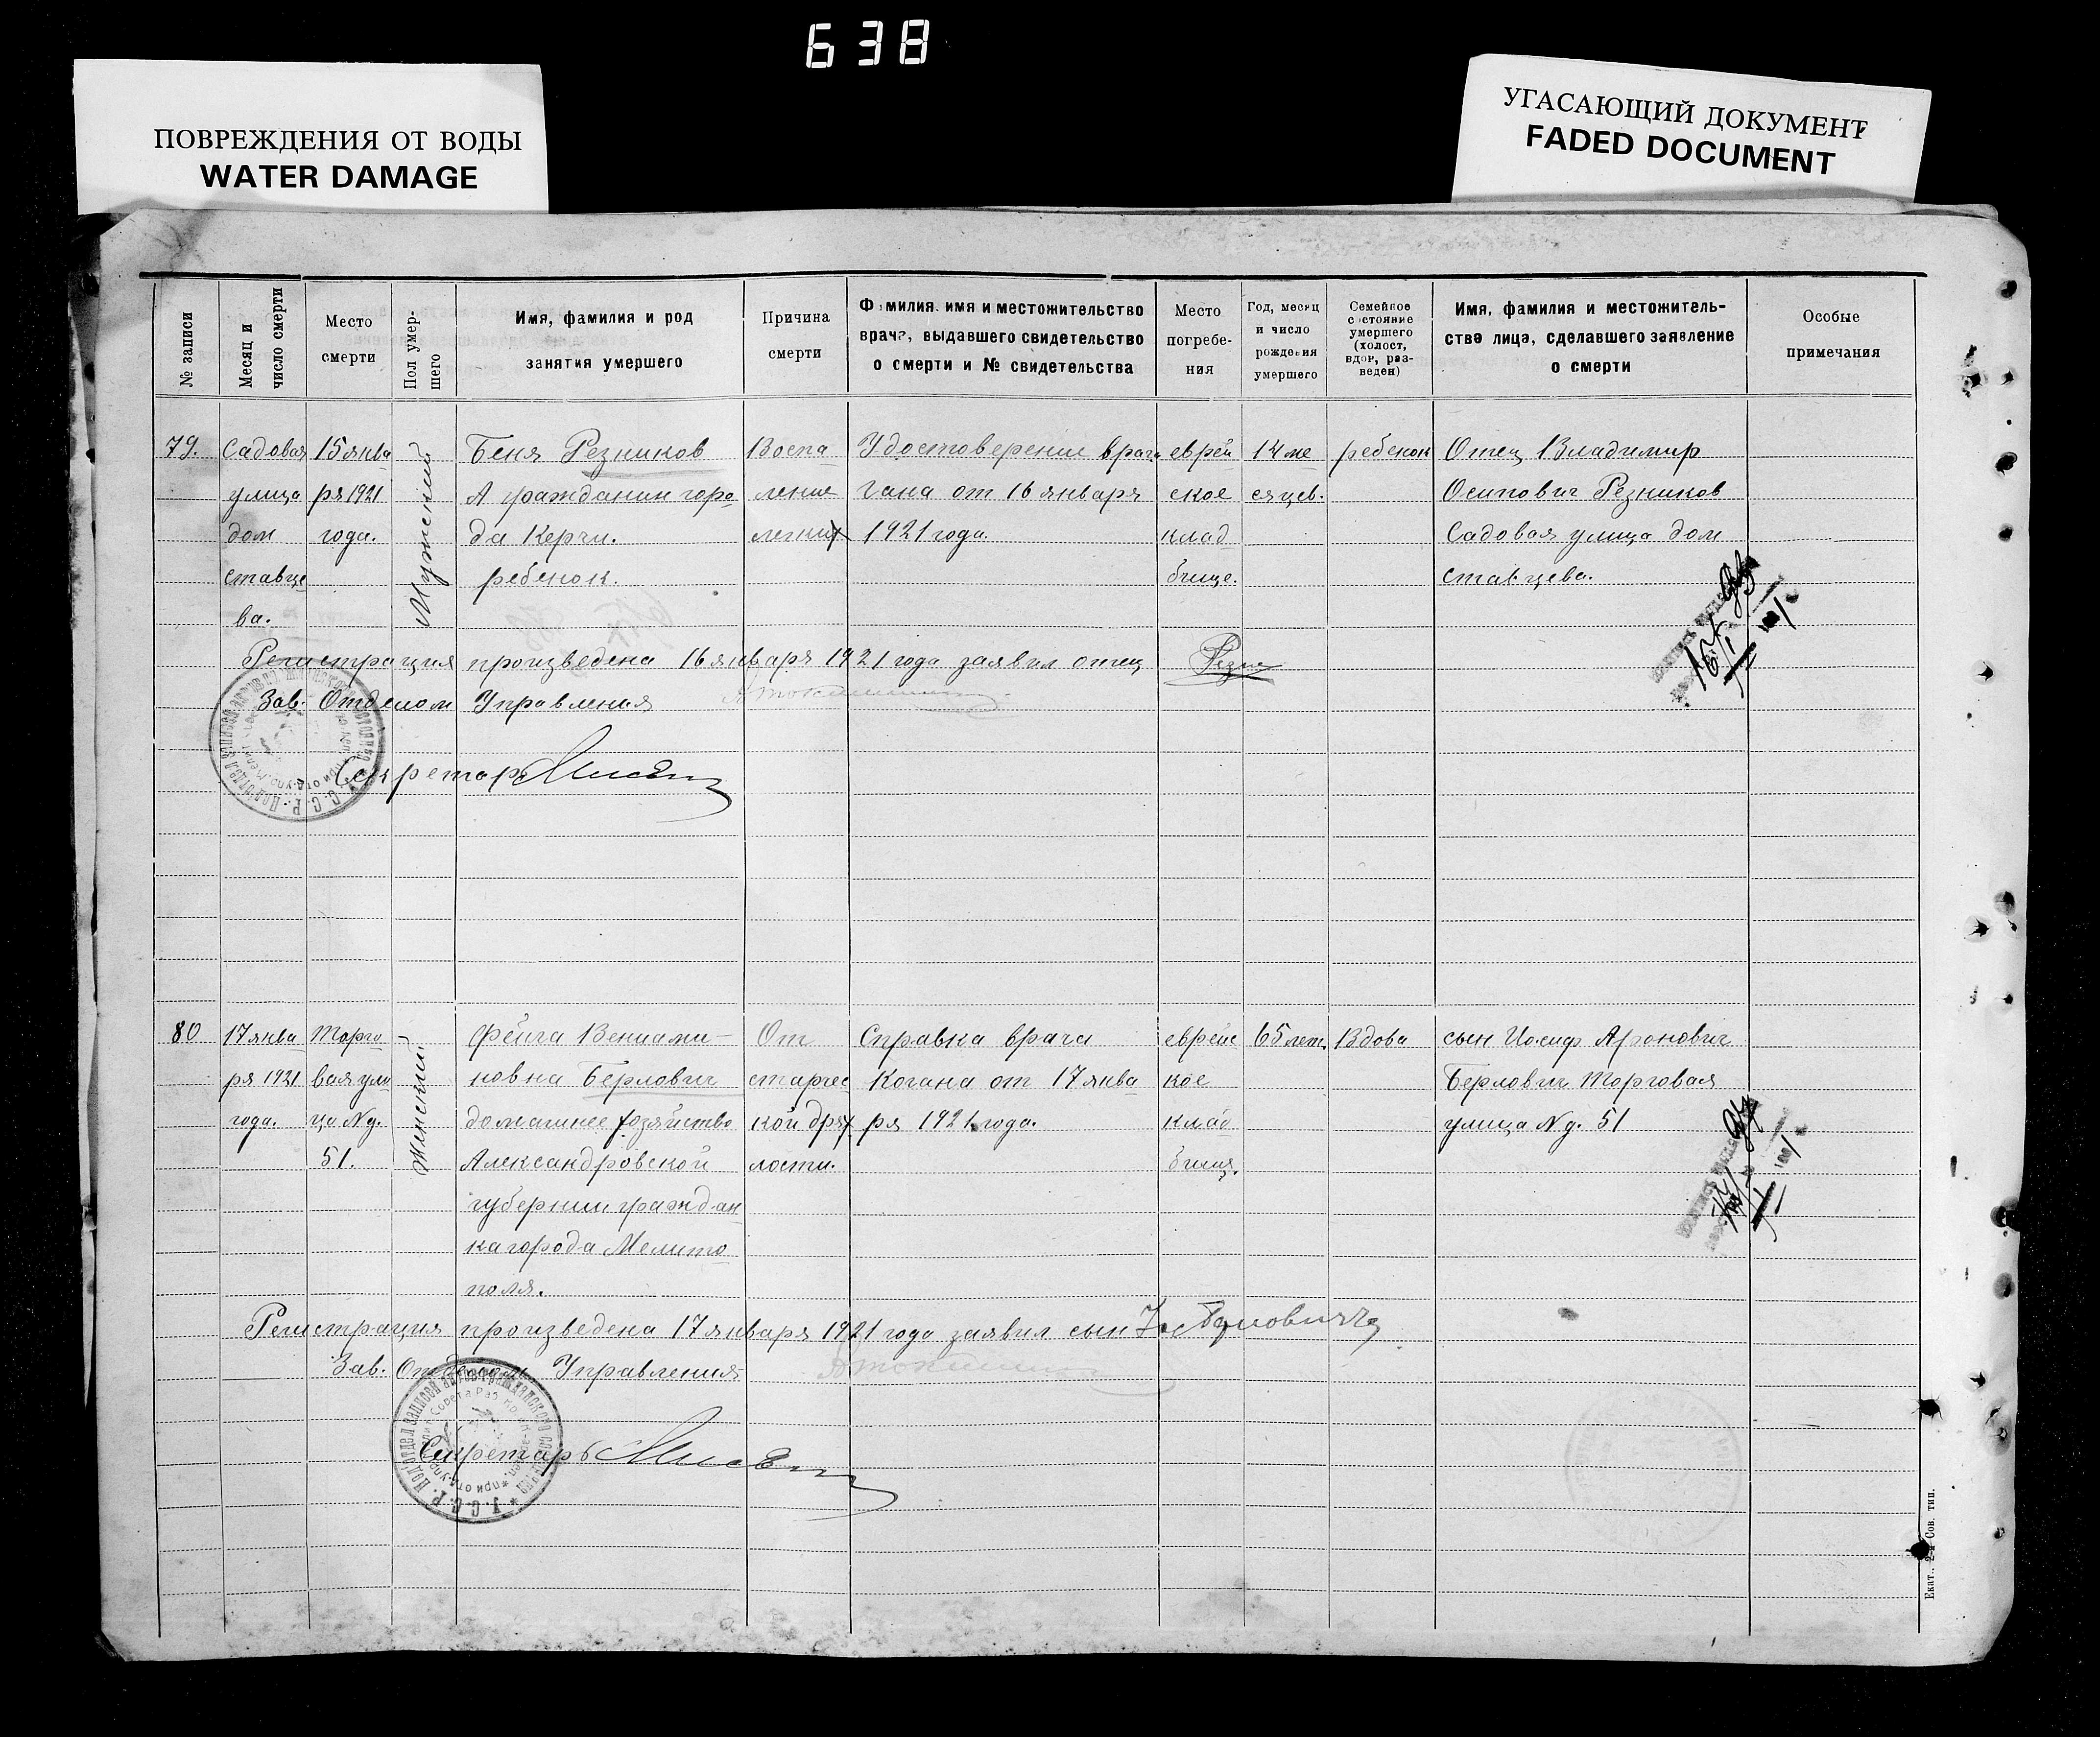 638
ПОВРЕЖДЕНИЯ ОТ ВОДЫ
WATER DAMAGE
УГАСАЮЩИЙ ДОКУМЕНТ
FADED DOCUMENT
№ записи
Месяц и
число смерти
Место
смерти
Пол умер-
шего
Имя, фамилия и род
занятия умершего
Причина
смерти
Фамилия, имя и местожительство
врача, выдавшего свидетельство
о смерти и № свидетельства
Место
погребе-
ния
Год, месяц
и число
рождения
умершего
Семейное
состояние
умершего
(холост,
вдов, раз-
веден)
Имя, фамилия и местожитель-
ство лица, сделавшего заявление
о смерти
Особые
примечания
79.
Садовая
улица
дом
ставце
ва.
15 янва
ря 1921
года.
Мужеский
Беня Резников
гражданин горо
да Керчи.
ребенок.
Воспа
ление
легких
Удостоверение врача
Гана от 16 января
1921 года.
еврей
ское
клад
бище.
14 ме
сяцев.
ребенок
Отец Владимир
Осипович Резников
Садовая улица дом
ставцева.
Регистрация произведена 16 января 1921 года заявил отец
Зав. Отделом Управления
Секретарь
80
17 янва
ря 1921
года.
Торго
вая ули
ца № д.
51.
Женский
Фейга Вениами-
новна Берлович
домашнее хозяйство
Александровской
губернии граждан
ка города Мелито
поля.
От
старчес
кой дрях
лости.
Справка врача
Когана от 17 янва
ря 1921 года.
еврейс
кое
клад
бище.
65 лет.
Вдова
сын Иосиф Аронович
Берлович Торговая
улица № д. 51
Регистрация произведена 17 января 1921 года заявил сын
Зав. Отделом Управления
Секретарь
Екат., 2-я Сов. тип.